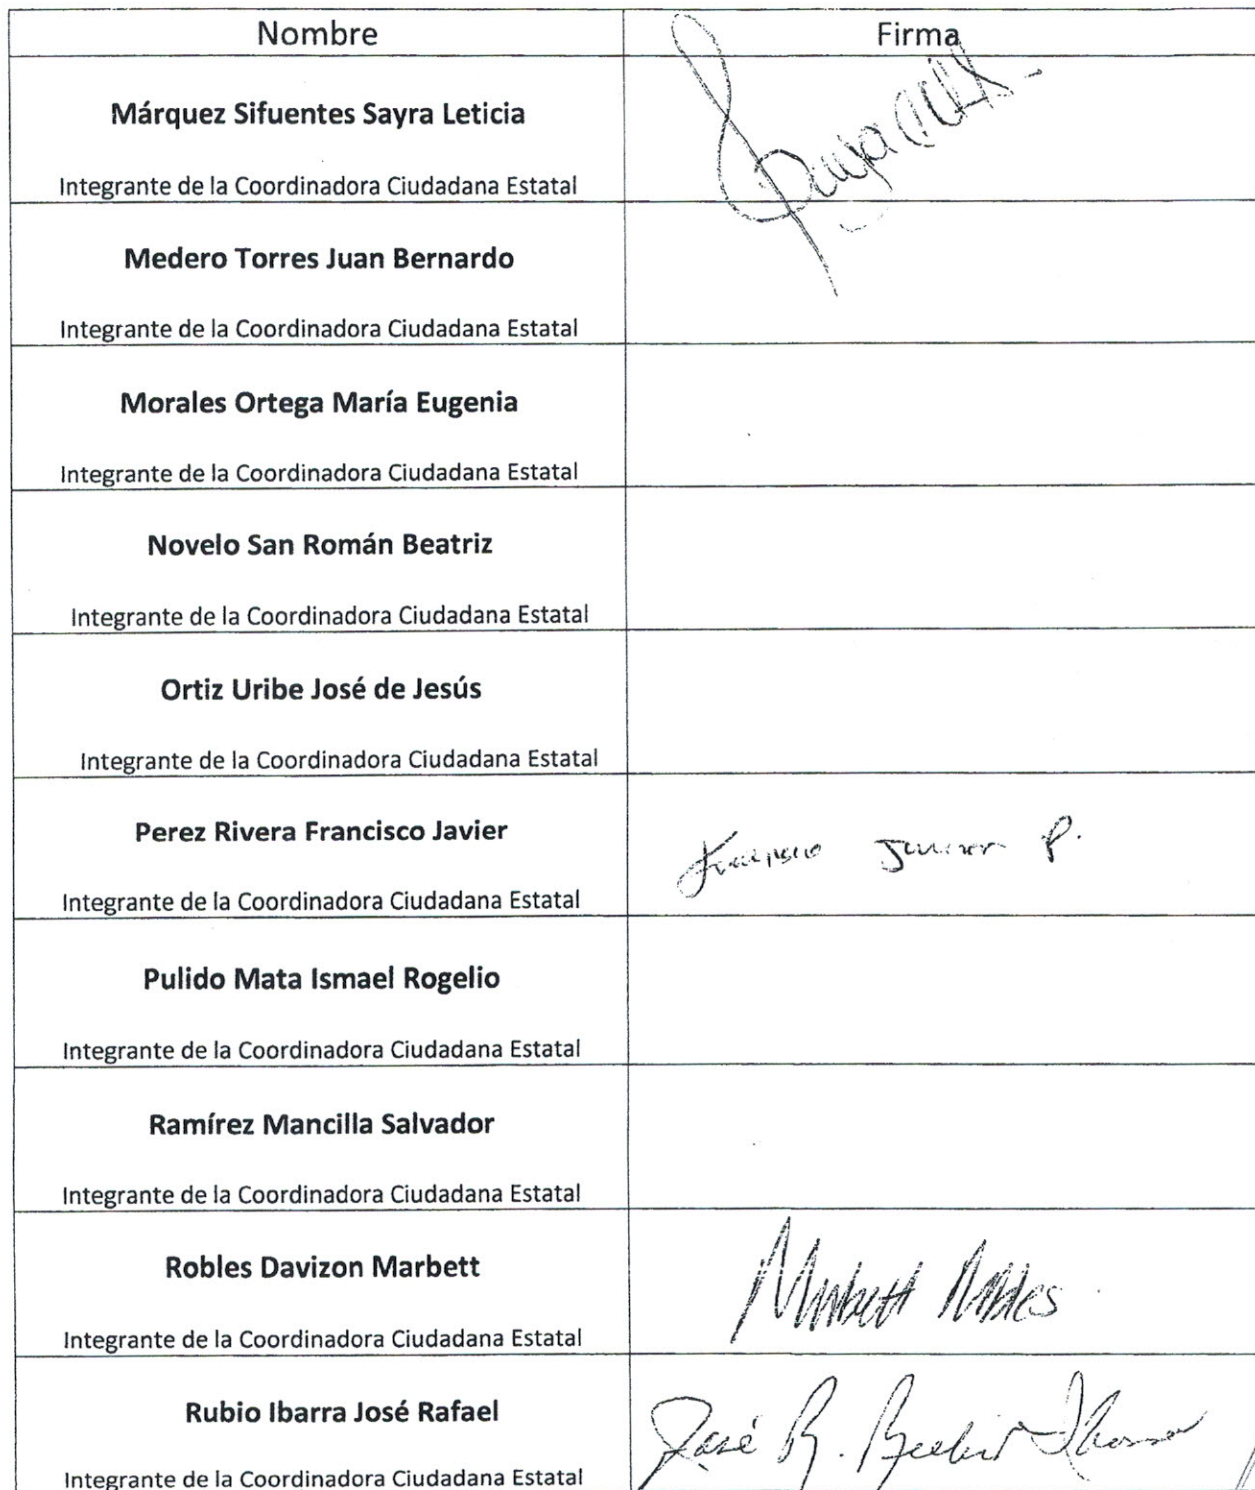 Nombre Firma
Márquez Sifuentes Sayra Leticia
Integrante de la Coordinadora Ciudadana Estatal
Medero Torres Juan Bernardo
Integrante de la Coordinadora Ciudadana Estatal
Morales Ortega María Eugenia
Integrante de la Coordinadora Ciudadana Estatal
Novelo San Román Beatriz
Integrante de la Coordinadora Ciudadana Estatal
Ortiz Uribe José de Jesús
Integrante de la Coordinadora Ciudadana Estatal
Perez Rivera Francisco Javier
Francisco Javier P.
Integrante de la Coordinadora Ciudadana Estatal
Pulido Mata Ismael Rogelio
Integrante de la Coordinadora Ciudadana Estatal
Ramírez Mancilla Salvador
Integrante de la Coordinadora Ciudadana Estatal
Robles Davizon Marbett
Marbett Robles
Integrante de la Coordinadora Ciudadana Estatal
Rubio Ibarra José Rafael
José R. Rubio Ibarra
Integrante de la Coordinadora Ciudadana Estatal